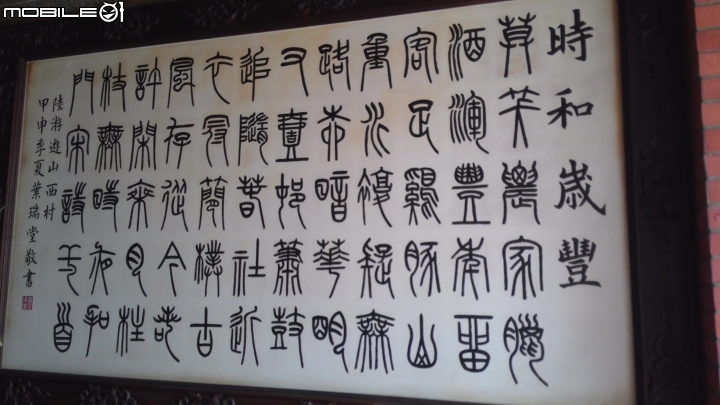 MOBILE01
時和歲豐
莫笑農家臘
酒渾豐年留
客足雞豚山
重水複疑無
路柳暗華明
又壹邨簫鼓
追隨春社近
衣冠簡樸古
風存從今若
許閑乘月柱
杖無時夜叩
門宋詩首
陸游遊山西村
甲申季夏葉瑞堂敬書